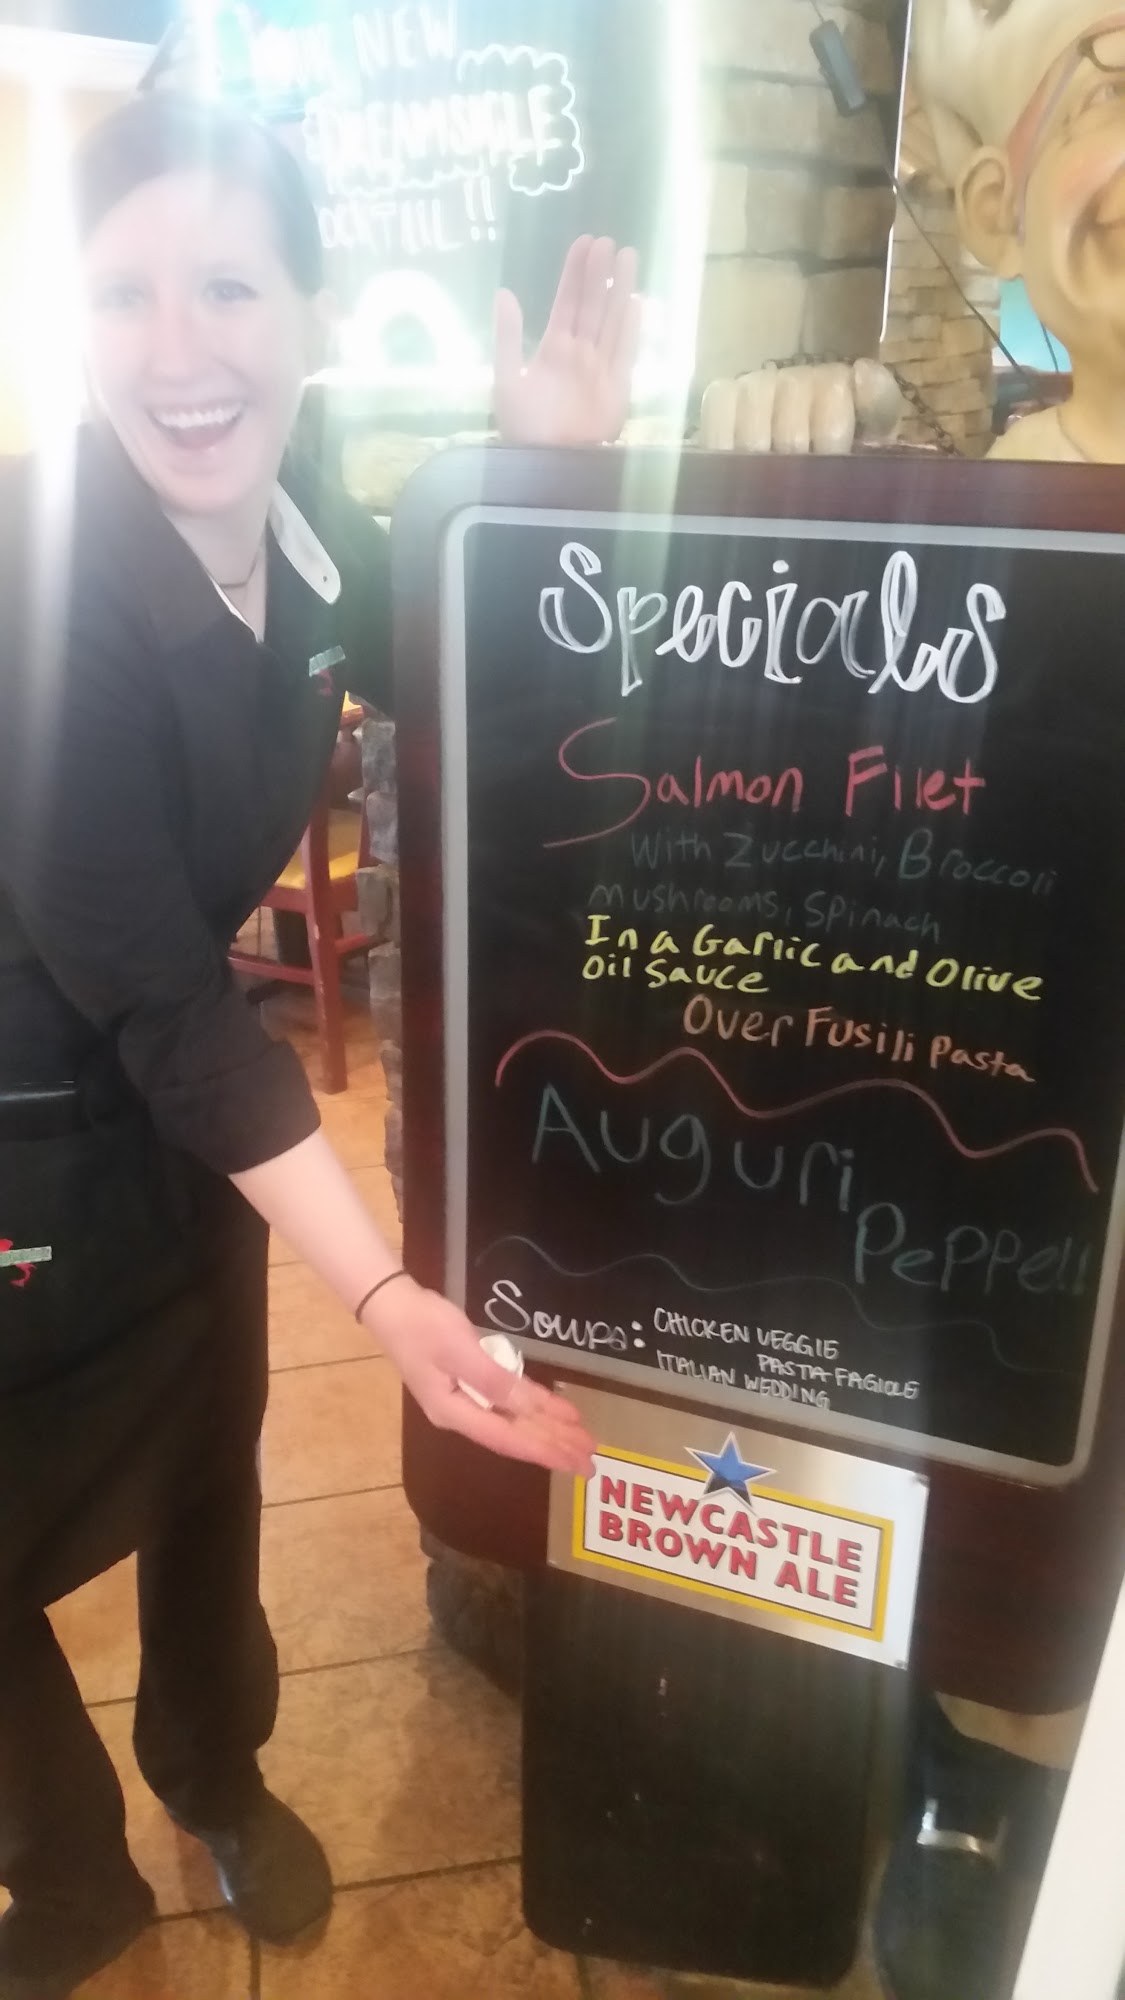 OUR NEW
DREAMSICLE
COCKTAIL!!
Specials
Salmon Filet
With Zucchini, Broccoli
mushrooms, Spinach
In a Garlic and Olive
Oil Sauce
Over Fusili Pasta
Auguri
Peppe!!
Soups: CHICKEN VEGGIE
PASTA FAGIOLE
ITALIAN WEDDING
NEWCASTLE
BROWN ALE